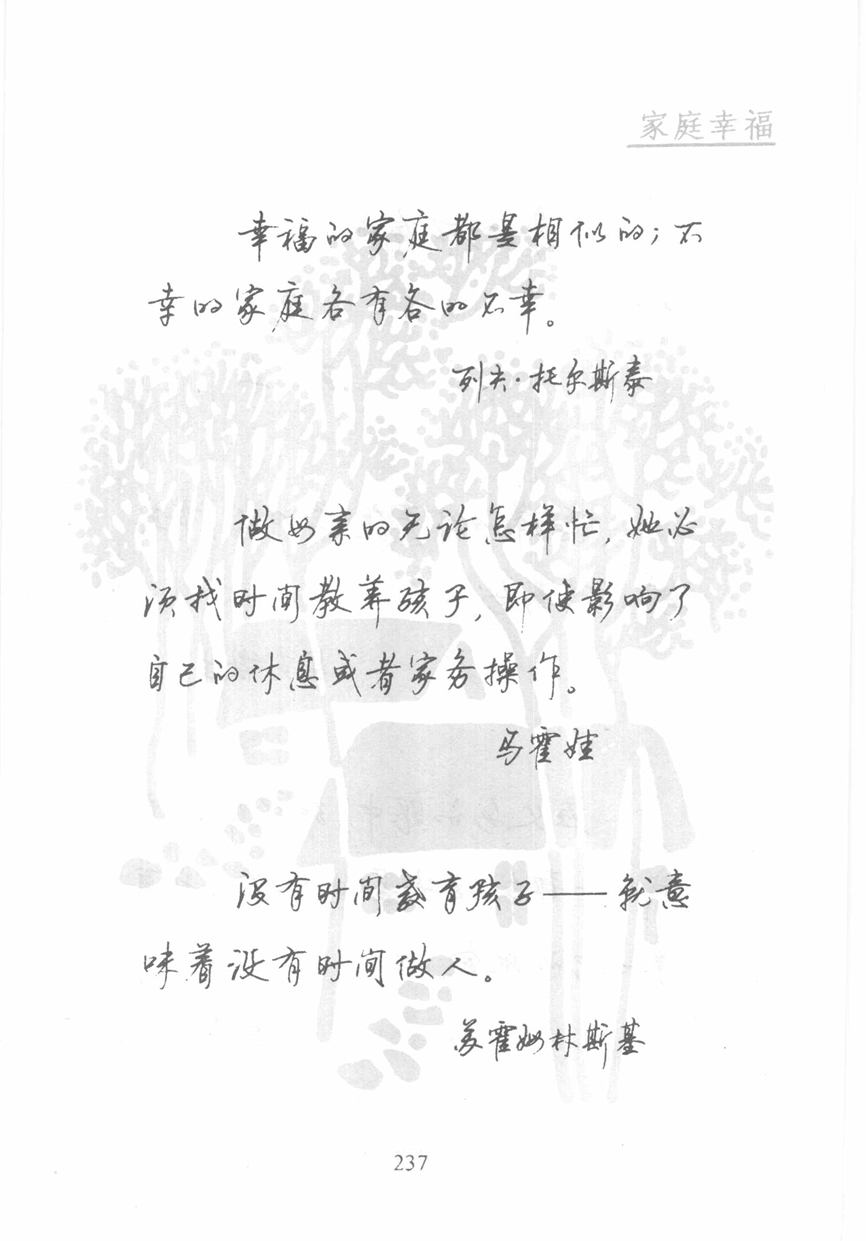 家庭幸福
幸福的家庭都是相似的；不
幸的家庭各有各的不幸。
列夫·托尔斯泰
做母亲的无论怎样忙，她必
须找时间教养孩子，即使影响了
自己的休息或者家务操作。
马霍娃
没有时间教育孩子——就意
味着没有时间做人。
苏霍姆林斯基
237